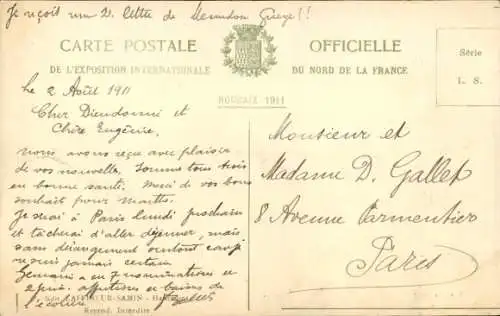 Je reçois une 2. lettre de
CARTE POSTALE OFFICIELLE
DE L'EXPOSITION INTERNATIONALE DU NORD DE LA FRANCE
ROUBAIX 1911
Série
L. S.
Le 2 Août 1911
Cher Dieudonné et
Chère Eugénie,
nous avons reçu avec plaisir
de vos nouvelles. Sommes tous trois
en bonne santé. Merci de vos bons
souhaits pour Marthe.
Je irai à Paris lundi prochain
et tâcherai d'aller déjeuner, mais
sans dérangement surtout car je
ne suis jamais certain
Germaine a eu 7 nominations et
2 prix. et baisers de
l'écolière
Monsieur et
Madame D. Gallet
8 Avenue Parmentier
Paris
Edit. LAFFINEUR-SAMIN
Reprod. Interdite